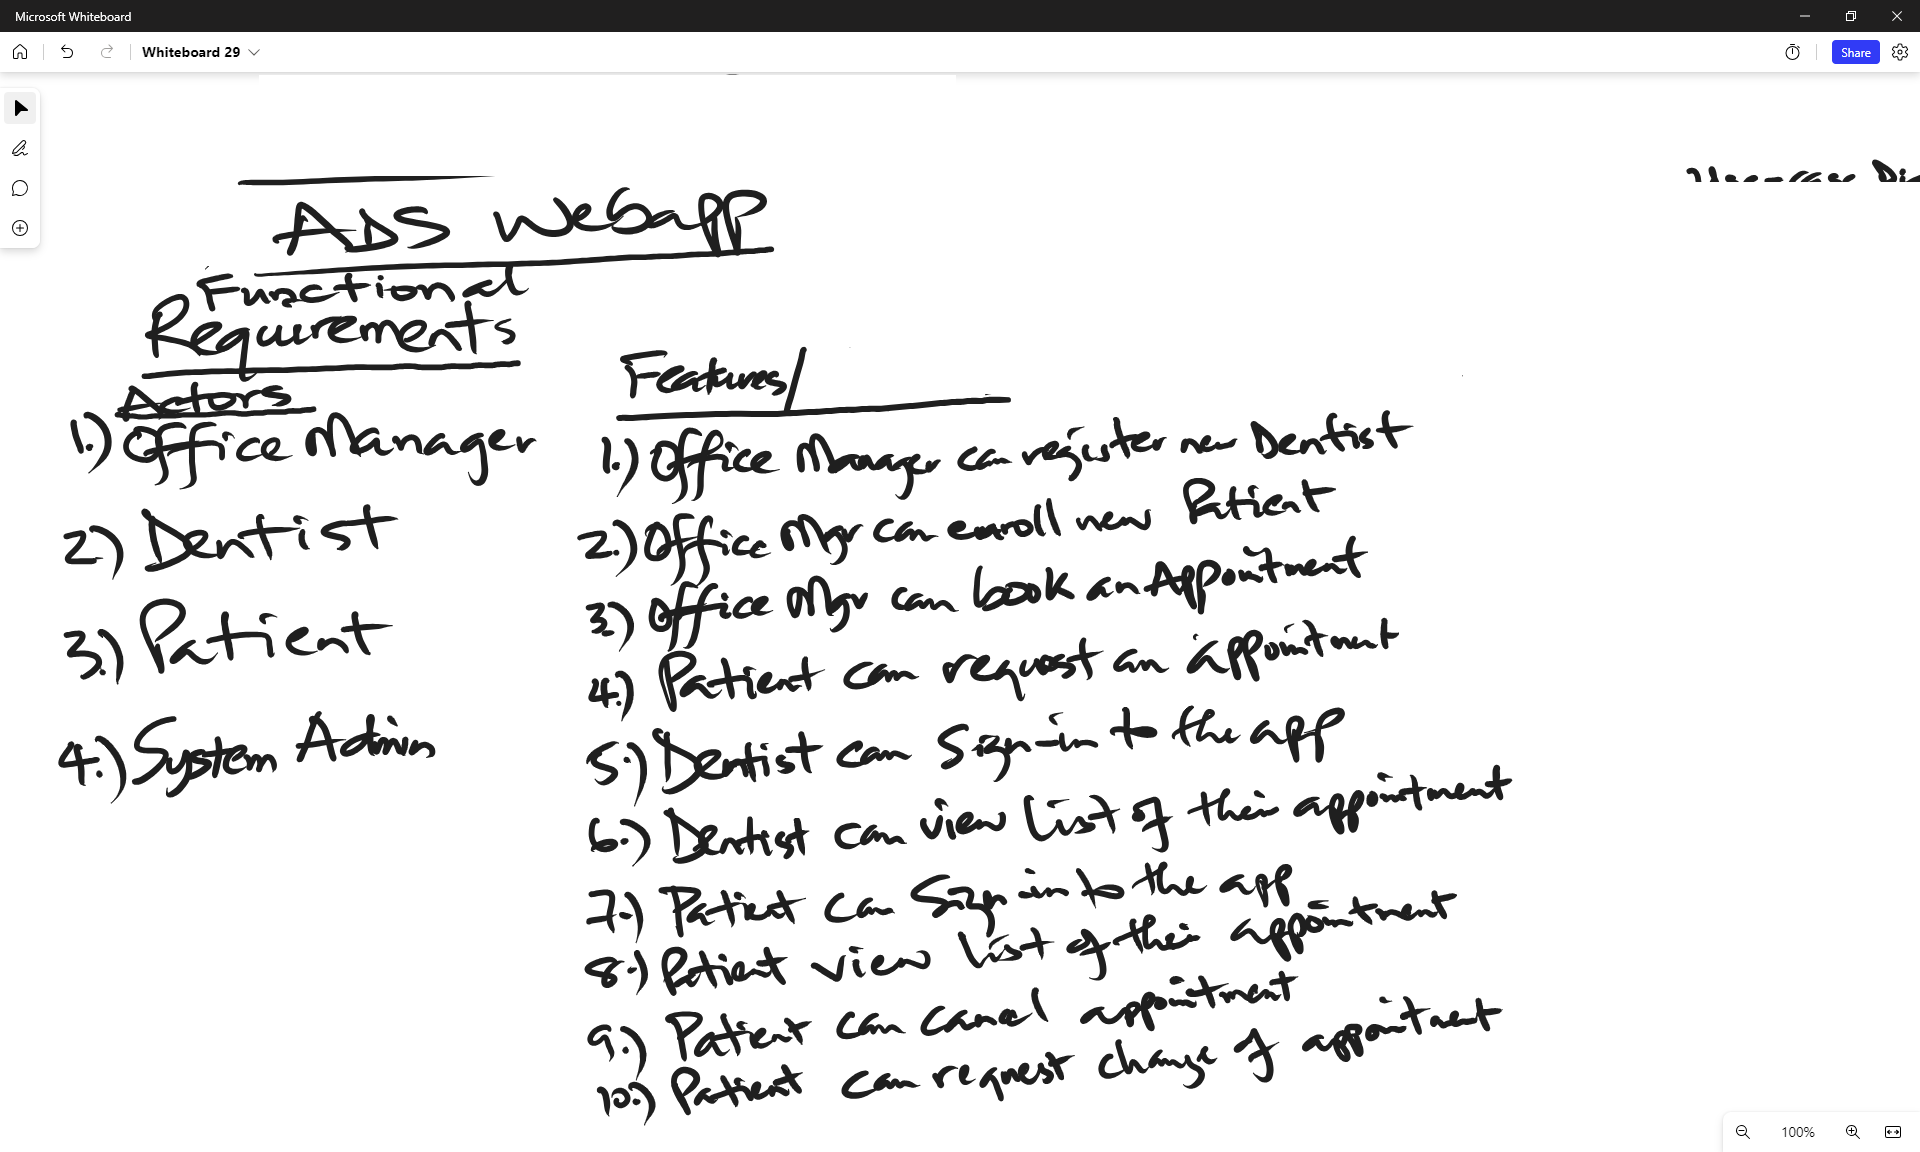 Microsoft Whiteboard
Whiteboard 29
Share
ADS Webapp
Functional
Requirements
Actors
1.) Office Manager
2.) Dentist
3.) Patient
4.) System Admin
Features/
1.) Office Manager can register new Dentist
2.) Office Mgr can enroll new Patient
3.) Office Mgr can book an Appointment
4.) Patient can request an appointment
5.) Dentist can Sign-in to the app
6.) Dentist can view list of their appointment
7.) Patient can Sign in to the app
8.) Patient view list of their appointment
9.) Patient can cancel appointment
10.) Patient can request change of appointment
100%